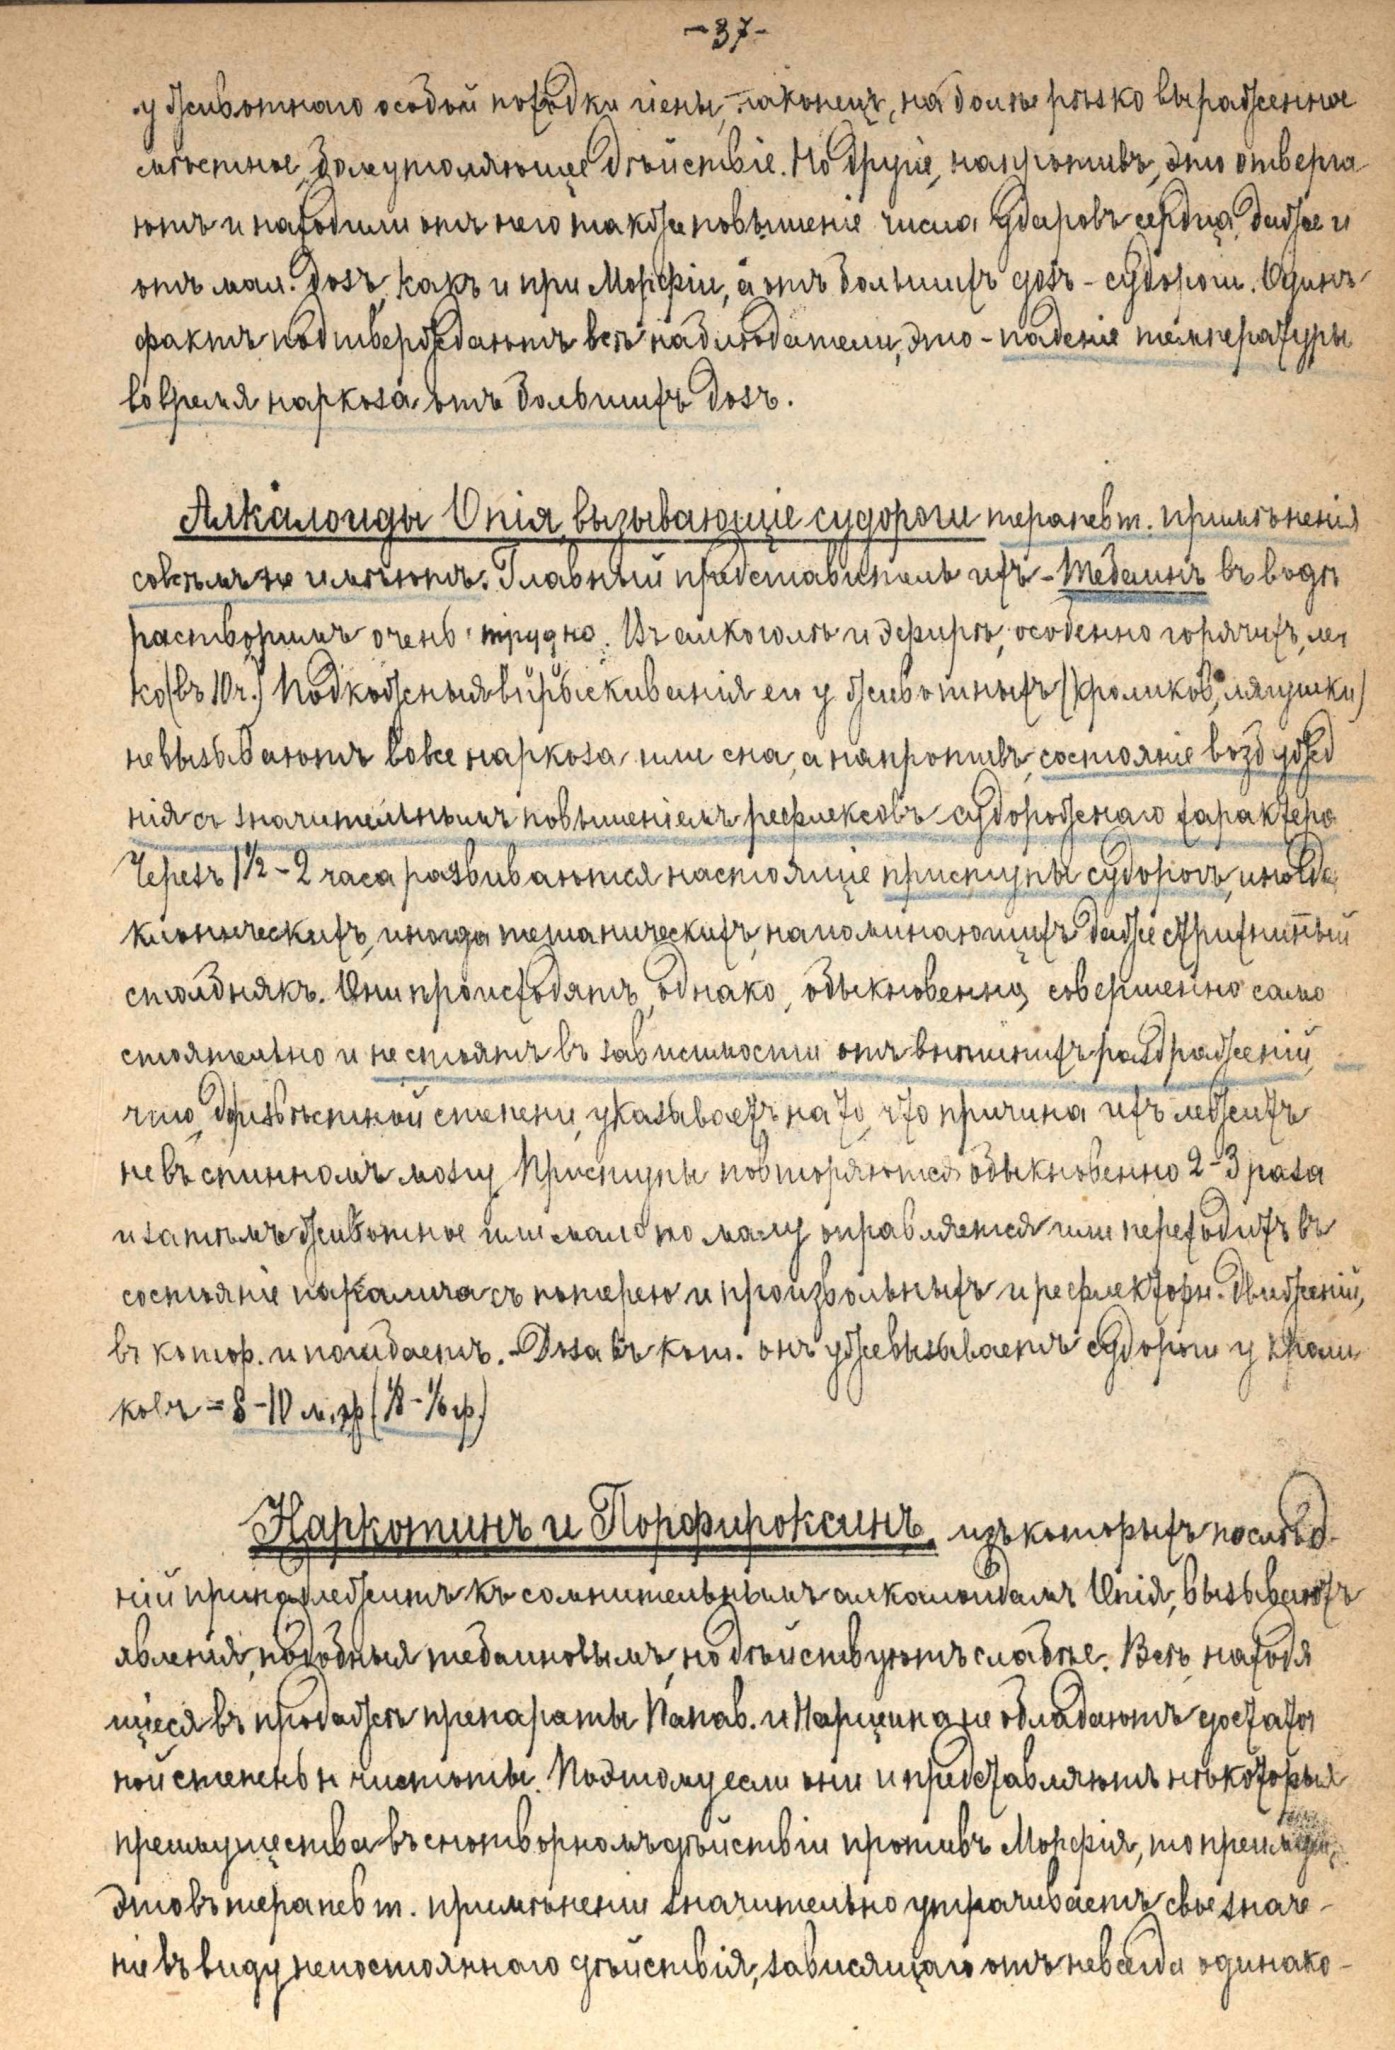 -37-
у животнаго особой походки гіены, наконецъ, на болѣе рѣзко выраженное
мѣстное болеутоляющее дѣйствіе. Но другіе, напротивъ, это отверга
ютъ и находили отъ него также повышеніе числа ударовъ сердца даже и
отъ мал. дозъ, какъ и при Морфіи, а отъ большихъ дозъ - судороги. Одинъ
фактъ подтверждаютъ всѣ наблюдатели, это - паденіе температуры
во время наркоза отъ большихъ дозъ.
Алкалоиды Опія, вызывающіе судороги терапевт. примѣненія
совсѣмъ не имѣютъ. Главный представитель ихъ - Тебаинъ въ водѣ
растворимъ очень трудно. Въ алкоголѣ и эфирѣ, особенно горячихъ, лег
ко (въ 10 ч.) Подкожныя впрыскиванія его у животныхъ (кроликов, лягушки)
не вызываютъ вовсе наркоза или сна, а напротивъ, состояніе возбужд
нія съ значительнымъ повышеніемъ рефлексовъ судорожнаго характера
Черезъ 1 1/2 - 2 часа развиваются настоящіе приступы судорогъ, иногда
клоническихъ, иногда тетаническихъ, напоминающихъ даже стрихнинный
столбнякъ. Они происходятъ, однако, обыкновенно, совершенно само
стоятельно и не стоятъ въ зависимости отъ внѣшнихъ раздраженій,
что, до извѣстной степени, указываетъ на то, что причина ихъ лежитъ
не въ спинномъ мозгу. Приступы повторяются обыкновенно 2-3 раза
и затѣмъ животное или мало по малу оправляется или переходитъ въ
состояніе паралича съ потерею и произвольныхъ и рефлекторн. движеній,
въ котор. и погибаетъ. - Доза въ кот. онъ уже вызываетъ судороги у кроли
ковъ = 8-10 м.гр (1/8 - 1/6 гр.)
Наркотинъ и Порфироксинъ, изъ которыхъ послѣд-
ній принадлежитъ къ сомнительнымъ алкалоидамъ Опія, вызываютъ
явленія, подобныя тебаиновымъ, но дѣйствуютъ слабѣе. Всѣ находя
щіеся въ продажѣ препараты Папав. и Нарцеина не обладаютъ достаточ
ной степенью чистоты. Поэтому если они и представляютъ нѣкоторыя
преимущества въ снотворномъ дѣйствіи противъ Морфія, то преимущ.
это въ терапевт. примѣненіи значительно утрачиваетъ свое значе-
ніе въ виду непостояннаго дѣйствія, зависящаго отъ не всегда одинако-